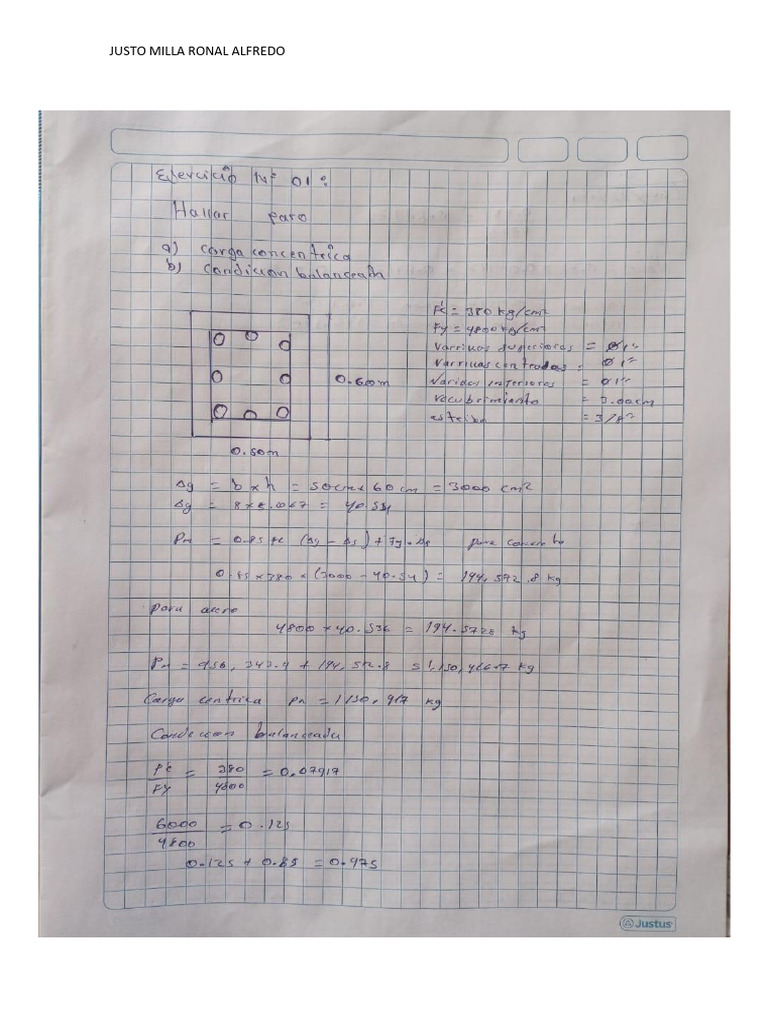 JUSTO MILLA RONAL ALFREDO
Ejercicio N° 01:
Hallar para
a) carga concentrica
b) condicion balanceada
F'c = 380 kg/cm²
Fy = 4800 kg/cm²
Varrillas superiores = Ø1"
Varrillas centrades = Ø1"
Varidas inferiores = Ø1"
recubrimiento = cm
estribo = 3/8"
0.60m
0.50m
Ag = b x h = 50cm x 60cm = 3000 cm²
Ag = 8 x 5.0067 = 40.534
Pn = 0.85 fc (Ag - As) + Fy. As para concreto
0.85 x 380 x (3000 - 40.54) = 194,572.8 kg
para acero
4800 x 40.536 = 194.5728 kg
Pn = 956,343.4 + 194,572.8 = kg
Carga centrica Pn = 1150.917 kg
Condicion balanceada
F'c / Fy = 380 / 4800 = 0.07917
6000 / 4800 = 0.125
0.125 + 0.85 = 0.975
Justus